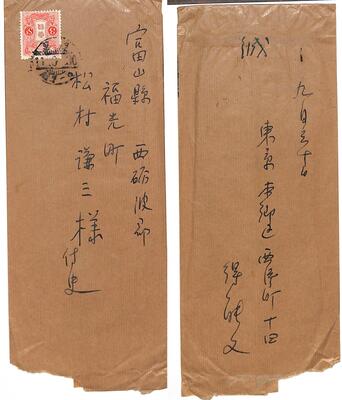 富山縣 西砺波郡
福光町
松村謙三様
侍史
緘
九月三十日
東京本郷区西片町十四
得能文